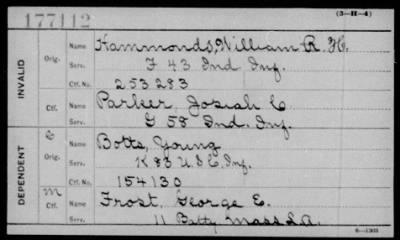 177112
(3-H-4)
INVALID
Orig.
Name Hammonds, William R. H.
Serv. F 43 Ind Inf.
Ctf. No. 253283
Ctf.
Name Parker, Josiah C
Serv. G 58 Ind. Inf.
DEPENDENT
C
Orig.
Name Botts, Young
Serv. K 83 U.S.C. Inf.
Ctf. No. 154130
M
Ctf.
Name Frost, George E.
Serv. 11 Batty Mass L.A.